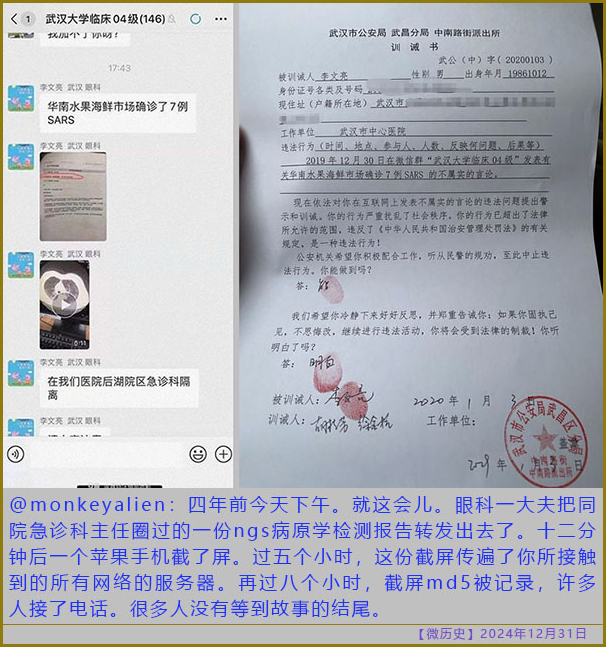 武汉大学临床04级(146)
1
17:43
李文亮 武汉 眼科
华南水果海鲜市场确诊了7例
SARS
李文亮 武汉 眼科
李文亮 武汉 眼科
0:11
李文亮 武汉 眼科
在我们医院后湖院区急诊科隔
离
李文亮 武汉 眼科
武汉市公安局 武昌分局 中南路街派出所
训诫书
武公（中）字（20200103）
被训诫人 李文亮 性别 男 出身年月 19861012
身份证号各类及号码
现住址（户籍所在地） 武汉市
工作单位 武汉市中心医院
违法行为（时间、地点、参与人、人数、反映何问题、后果等）
2019年12月30日在微信群“武汉大学临床04级”发表有
关华南水果海鲜市场确诊7例SARS的不属实的言论。
现在依法对你在互联网上发表不属实的言论的违法问题提出警
示和训诫。你的行为严重扰乱了社会秩序。你的行为已超出了法律
所允许的范围，违反了《中华人民共和国治安管理处罚法》的有关
规定，是一种违法行为！
公安机关希望你积极配合工作，听从民警的规劝，至此中止违
法行为。你能做到吗？
答：能
我们希望你冷静下来好好反思，并郑重告诫你：如果你固执己
见，不思悔改，继续进行违法活动，你将会受到法律的制裁！你听
明白了吗？
答：明白
被训诫人：李文亮 2020年1月3日
训诫人： 工作单位：
武汉市公安局武昌区分局
中南路街
派出所
@monkeyalien：四年前今天下午。就这会儿。眼科一大夫把同
院急诊科主任圈过的一份ngs病原学检测报告转发出去了。十二分
钟后一个苹果手机截了屏。过五个小时，这份截屏传遍了你所接触
到的所有网络的服务器。再过八个小时，截屏md5被记录，许多
人接了电话。很多人没有等到故事的结尾。
【微历史】2024年12月31日